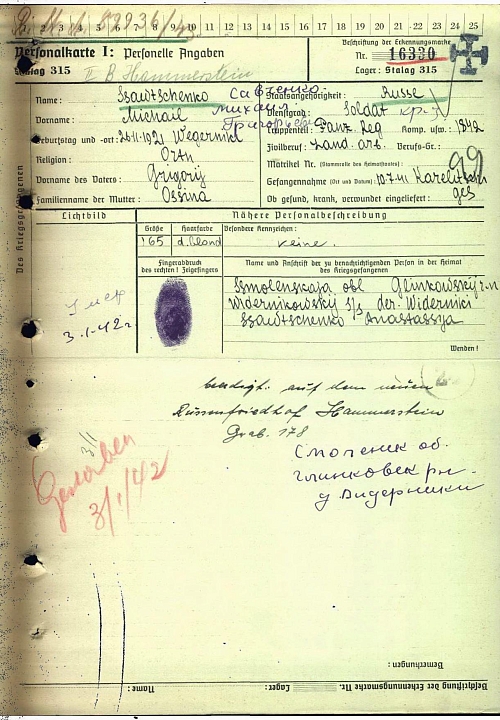 1 2 3 4 5 6 7 8 9 10 11 12 13 14 15 16 17 18 19 20 21 22 23 24 25
Personalkarte I: Personelle Angaben
Beschriftung der Erkennungsmarke
Nr. 16330
Stalag 315
II B Hammerstein
Lager: Stalag 315
Des Kriegsgefangenen
Name: Ssawtschenko Савченко
Staatsangehörigkeit: Russe
Vorname: Michail Михаил
Dienstgrad: Soldat кр-ц
Григорьев
Geburtstag und -ort: 26.11.1921 Wegerniki
Truppenteil: Panz. Reg Komp. usw.: 1942
Religion: Orth
Zivilberuf: Land. arb. Berufs-Gr.:
Vorname des Vaters: Grigorij
Matrikel Nr. (Stammrolle des Heimatstaates):
Gefangennahme (Ort und Datum): 10.7.41
Familienname der Mutter: Ossina
Ob gesund, krank, verwundet eingeliefert: ges
Lichtbild
Nähere Personalbeschreibung
Größe Haarfarbe Besondere Kennzeichen:
165 d. blond keine.
Fingerabdruck
des rechten ! Zeigefingers
Name und Anschrift der zu benachrichtigenden Person in der Heimat
des Kriegsgefangenen
Ssmolenskaja obl Glinkowskij r-n
Widernikowskij s/s der Widerniki
Ssawtschenko Anastassija
3.1.42 г.
Wenden !
beerdigt: auf dem neuen
Russenfriedhof Hammerstein
Grab. 178
Смоленск об.
глинковск рн-
д Видерники
Gestorben
3/1
3/1/42
Bemerkungen:
Beschriftung der Erkennungsmarke Nr. Lager: Name: